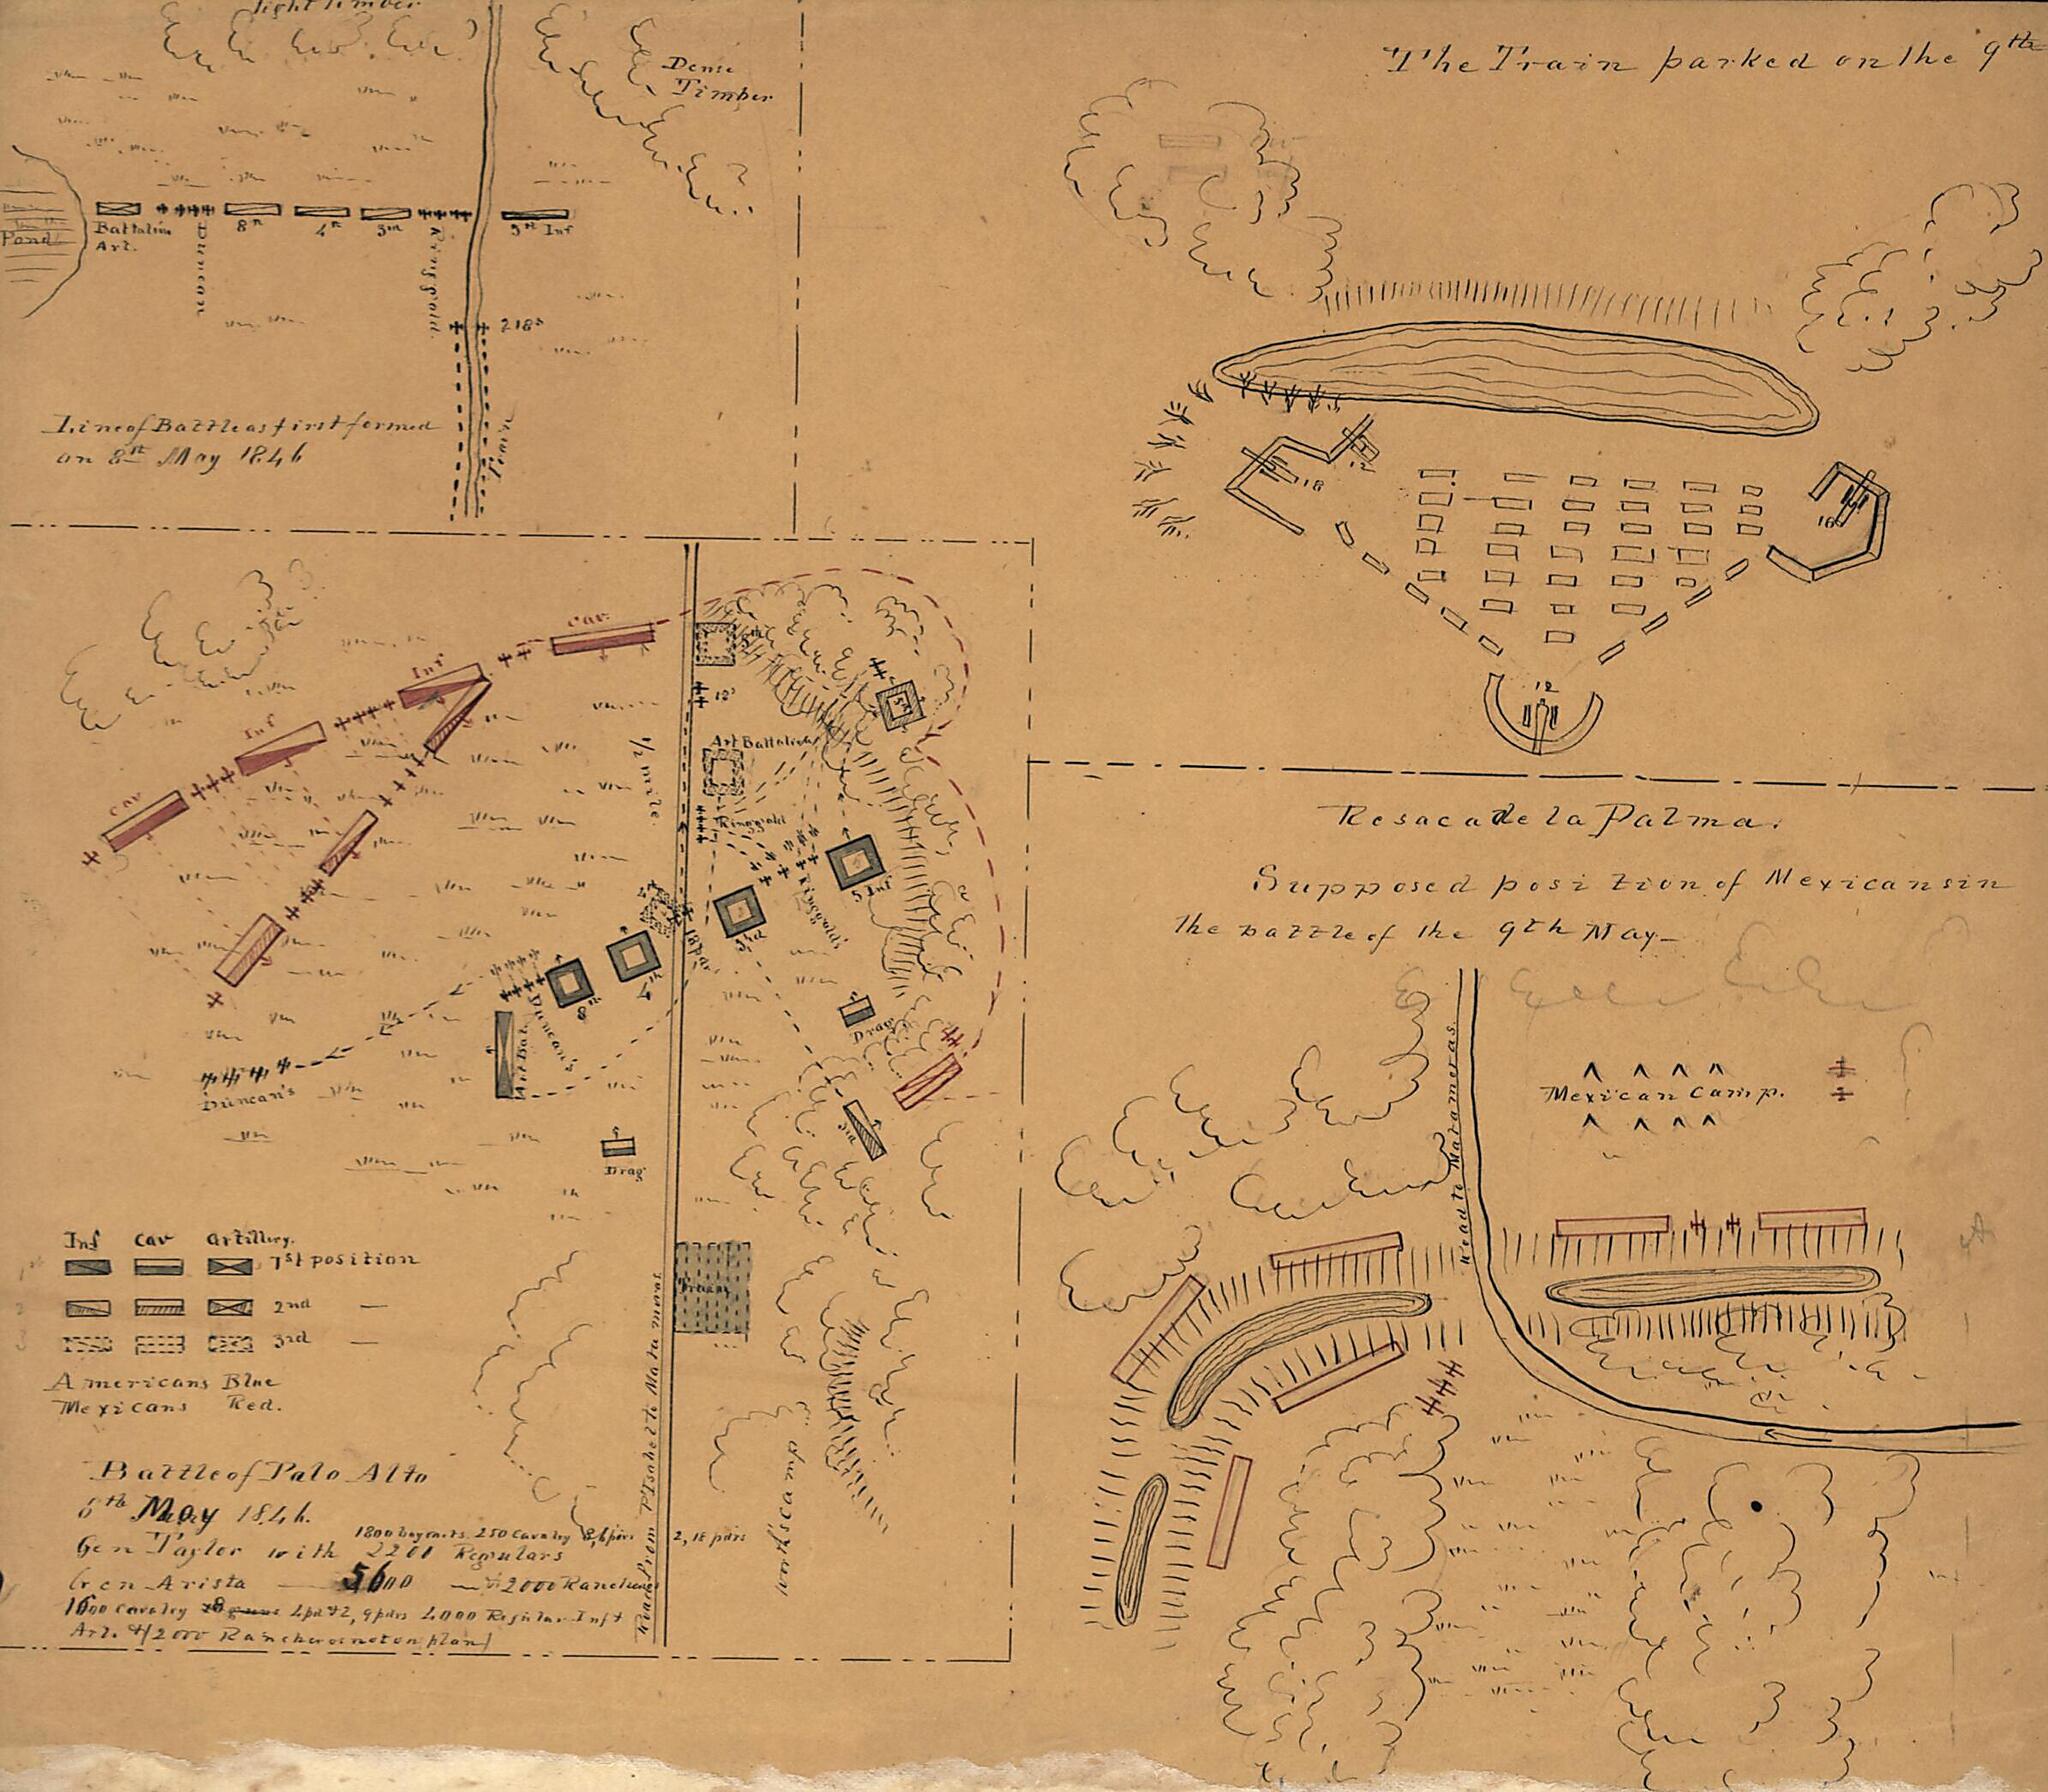 light timber
Dense
Timber
Pond
Battalion
Art.
Duncan
8th
4th
3rd
Ringgold
5th Inf
2 18s
Train
Line of Battle as first formed
on 8th May 1846
The Train parked on the 9th
18
12
18
12
Cav
Inf
Inf
Cav
8th
12s
5th
Art Battalion
1/2 mile
Ringgold
Ringgolds
5 Inf
3rd
18 pdr
4th
8th
Duncan's
Art Bat.
Duncan's
Drag
Drag
3rd
Train
Road from Pt Isabel to Matamoras
worth's camp
Inf Cav Artillery.
1st position
2nd —
3rd —
Americans Blue
Mexicans Red.
Battle of Palo Alto
8th May 1846.
1800 bayonets 250 Cavalry 8, 6 pdrs 2, 18 pdrs
Gen Taylor with 2200 Regulars
Gen Arista — 5600 — & 2000 Rancheros
1600 Cavalry 4 pd & 2, 9 pdrs 4000 Regular Inf &
Art. & (2000 Rancheros not on plan)
Resaca de la Palma.
Supposed position of Mexicans in
the battle of the 9th May —
Road to Matamoras.
Mexican Camp.